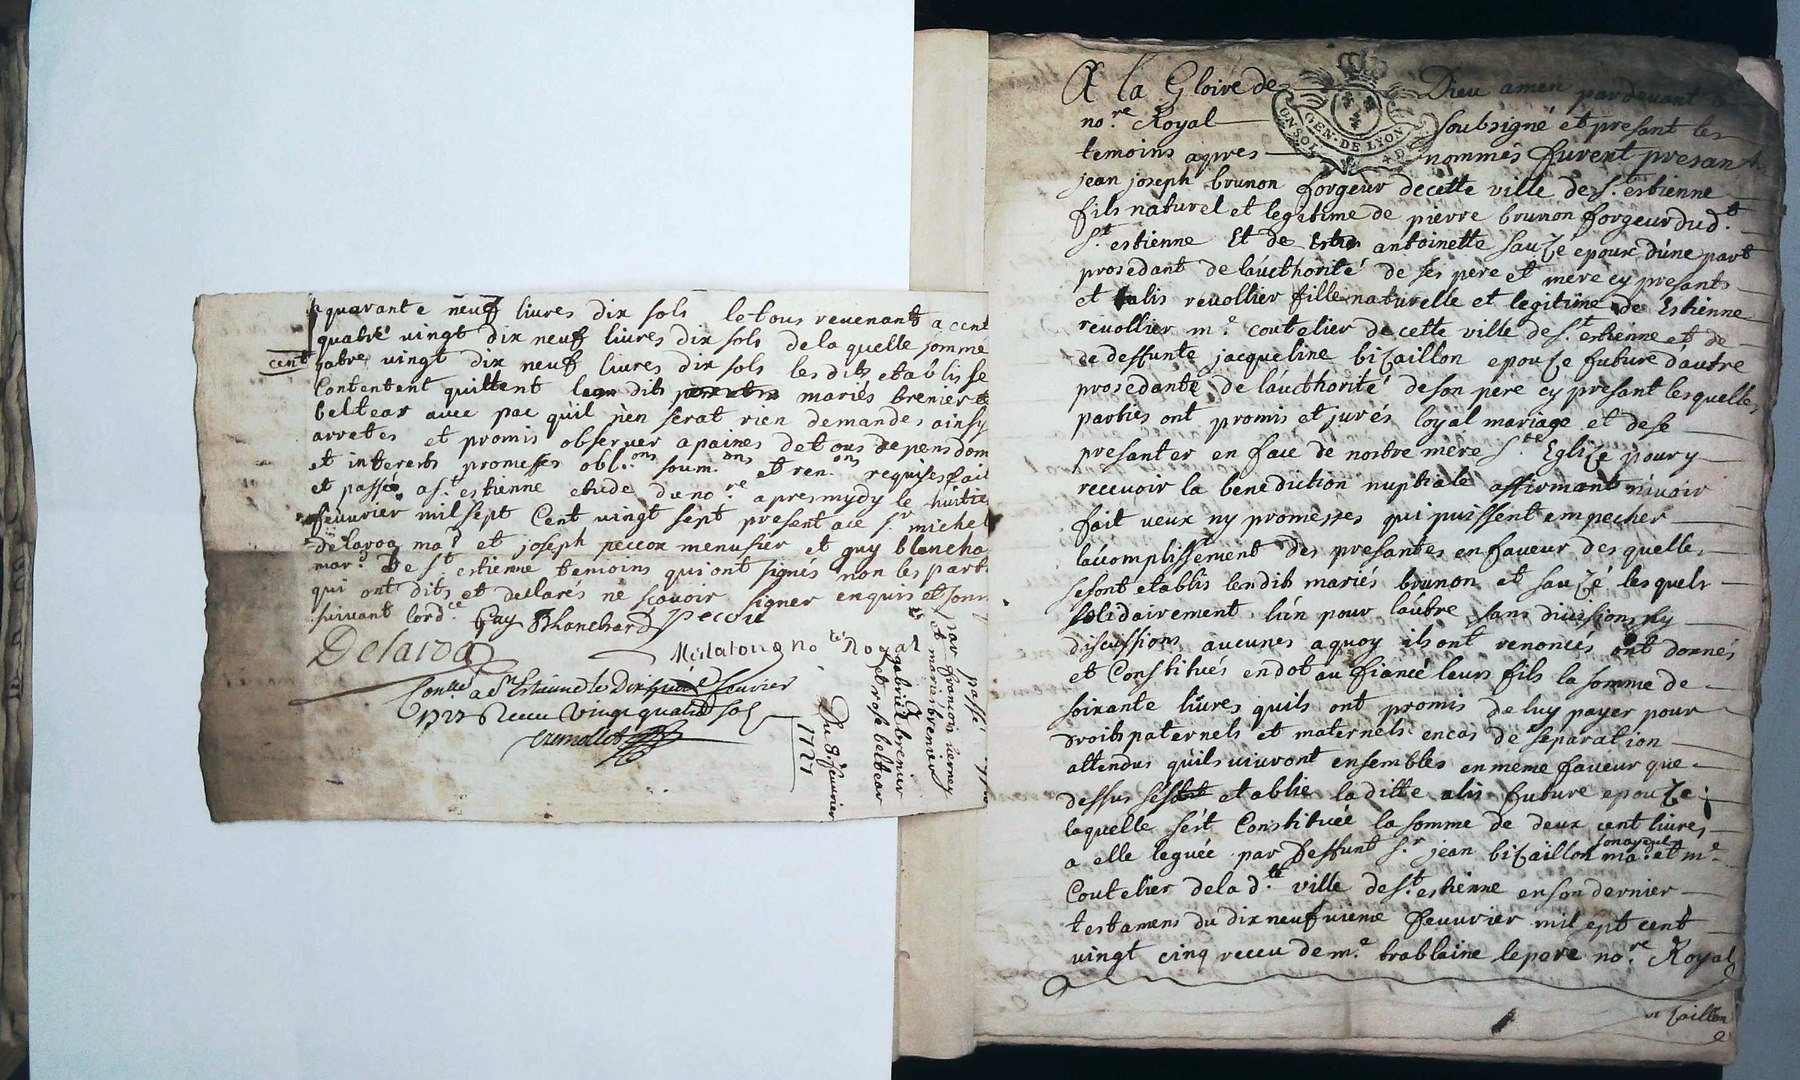 quarante neuf livres dix sols le tous revenant a cent
quatre vingt dix neuf livres dix sols de la quelle somme
cent
vingt dix neuf livres dix sols les dits etablis se
Contentent quittent les dits mariés brenier et
beltear avec pac qu'il n'en serat rien demandes ainsy
arretes et promis observer a paines de tous depens dom
et interets promesses obl.ons soum.ons et ren.ons requises fait
et passé a s.t estienne etude du no.re apres mydy le huitie
feuvrier mil sept Cent vingt sept present a ce s.r michel
delaroa ma.d et joseph peccox menusier et guy blancha
mar.d de s.t estienne temoins qui ont signés non les part
qui ont dits et declarés ne scavoir signer enquis et som
suivant lord.ce Guy Blanchard
Delaroa
no.re Royal
a S.t Estienne le feuvrier
1727 Receu Vingt quatre sols
Du 8 feuvrier
1727
gabriel brenier
et rose beltear
et marie brenier
par françois verney
passé
A la Gloire de Dieu amen pardevant le
no.re Royal soubsigné et presant les
GEN. DE LYON
temoins apres nommés furent presant
jean joseph brunon forgeur de cette ville de s.t estienne
fils naturel et legitime de pierre brunon forgeur dud.t
s.t estienne Et de antoinette sauzé epoux d'une part
prosedant de l'aucthorité de ses pere et mere cy presants
et alis revollier fille naturelle et legitime de Estienne
revollier m.e coutelier de cette ville de s.t estienne et de
de deffunte jacqueline bizaillon epouze future d'autre
prosedante de l'aucthorité de son pere cy presant lesquelles
parties ont promis et jurés loyal mariage et de se
presanter en face de nostre mere s.te Eglize pour y
recevoir la benediction nuptiale affirmant n'avoir
fait veux ny promesses qui puissent empecher
l'acomplissement des presantes en faveur des quelle
se sont etablis lesdits mariés brunon et sauzé lesquels
solidairement l'un pour l'autre sans division ny
discussions aucunes a quoy ils ont renoncés ont donnés
et Constitués en dot au fiancé leurs fils la somme de
soixante livres quils ont promis de luy payer pour
droits paternels et maternels en cas de separation
attendus qu'ils vivront ensembles en meme faveur que
dessus s'est etablie laditte alis future epouze
laquelle s'est Constituée la somme de deux cent livres
son ayeul
a elle leguée par deffunt s.r jean bizaillon ma.d et m.e
Coutelier de la d.te ville de s.t estienne en son dernier
testamens du dix neufvieme feuvrier mil sept cent
vingt cinq receu de m.e trablaine le pere no.re Royal